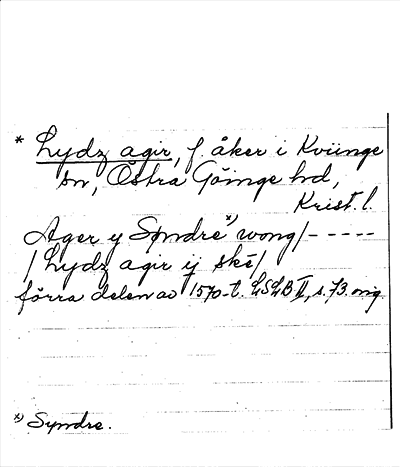 * Lydz agir, f. åker i Kviinge
sn, Östra Göinge hd,
Krist. l.
Ager y Søndre *) wong/-----
/Lydz agir ij ské/
förra delen av 1570-t. LSLB II, s. 73. orig
*) Syndre.